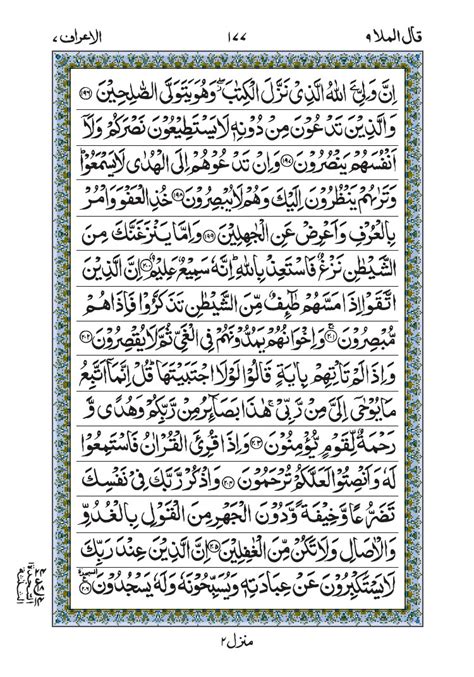 قال الملا ٩ ١٧٧ الاعراف ٧
اِنَّ وَلِیِّۦَ اللّٰهُ الَّذِیْ نَزَّلَ الْكِتٰبَ ۖ وَهُوَ یَتَوَلَّی الصّٰلِحِیْنَ ﴿۱۹۶﴾
وَالَّذِیْنَ تَدْعُوْنَ مِنْ دُوْنِهٖ لَا یَسْتَطِیْعُوْنَ نَصْرَكُمْ وَلَاۤ
اَنْفُسَهُمْ یَنْصُرُوْنَ ﴿۱۹۷﴾ وَاِنْ تَدْعُوْهُمْ اِلَی الْهُدٰی لَا یَسْمَعُوْا ؕ
وَتَرٰىهُمْ یَنْظُرُوْنَ اِلَیْكَ وَهُمْ لَا یُبْصِرُوْنَ ﴿۱۹۸﴾ خُذِ الْعَفْوَ وَاْمُرْ
بِالْعُرْفِ وَاَعْرِضْ عَنِ الْجٰهِلِیْنَ ﴿۱۹۹﴾ وَاِمَّا یَنْزَغَنَّكَ مِنَ
الشَّیْطٰنِ نَزْغٌ فَاسْتَعِذْ بِاللّٰهِ ؕ اِنَّهٗ سَمِیْعٌ عَلِیْمٌ ﴿۲۰۰﴾ اِنَّ الَّذِیْنَ
اتَّقَوْا اِذَا مَسَّهُمْ طٰٓئِفٌ مِّنَ الشَّیْطٰنِ تَذَكَّرُوْا فَاِذَا هُمْ
مُّبْصِرُوْنَ ﴿۲۰۱﴾ وَاِخْوَانُهُمْ یَمُدُّوْنَهُمْ فِی الْغَیِّ ثُمَّ لَا یُقْصِرُوْنَ ﴿۲۰۲﴾
وَاِذَا لَمْ تَاْتِهِمْ بِاٰیَةٍ قَالُوْا لَوْلَا اجْتَبَیْتَهَا ؕ قُلْ اِنَّمَاۤ اَتَّبِعُ
مَا یُوْحٰۤی اِلَیَّ مِنْ رَّبِّیْ ۚ هٰذَا بَصَآئِرُ مِنْ رَّبِّكُمْ وَهُدًی وَّ
رَحْمَةٌ لِّقَوْمٍ یُّؤْمِنُوْنَ ﴿۲۰۳﴾ وَاِذَا قُرِئَ الْقُرْاٰنُ فَاسْتَمِعُوْا
لَهٗ وَاَنْصِتُوْا لَعَلَّكُمْ تُرْحَمُوْنَ ﴿۲۰۴﴾ وَاذْكُرْ رَّبَّكَ فِیْ نَفْسِكَ
تَضَرُّعًا وَّخِیْفَةً وَّدُوْنَ الْجَهْرِ مِنَ الْقَوْلِ بِالْغُدُوِّ
وَالْاٰصَالِ وَلَا تَكُنْ مِّنَ الْغٰفِلِیْنَ ﴿۲۰۵﴾ اِنَّ الَّذِیْنَ عِنْدَ رَبِّكَ
لَا یَسْتَكْبِرُوْنَ عَنْ عِبَادَتِهٖ وَیُسَبِّحُوْنَهٗ وَلَهٗ یَسْجُدُوْنَ ﴿۲۰۶﴾
منزل ٢